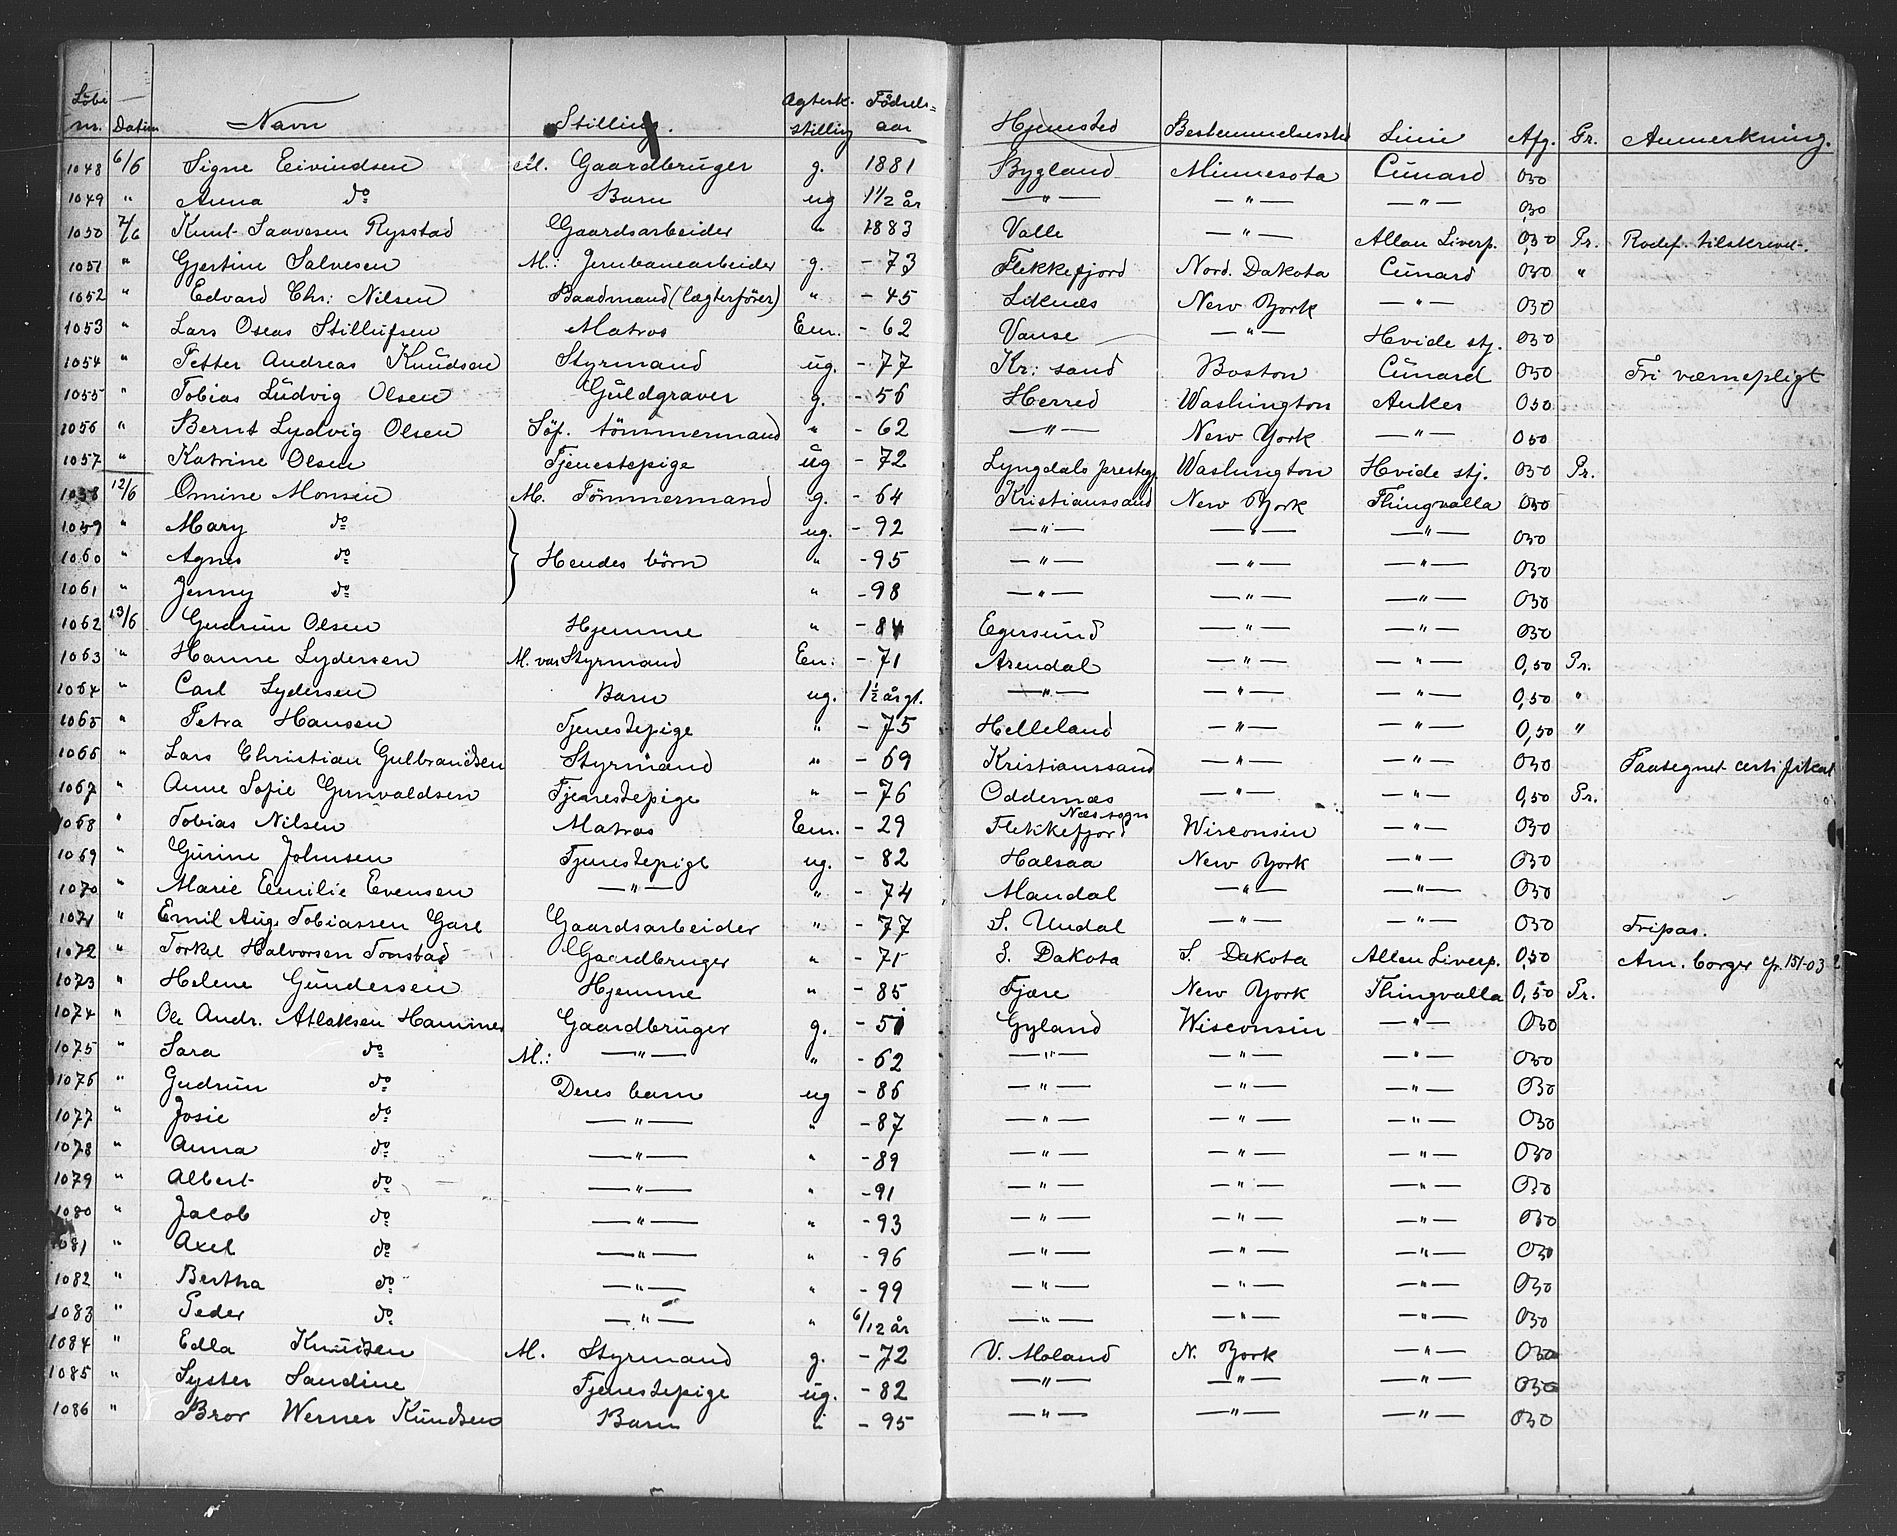 Löbe nr. Datum Navn Stilling. Ægtesk. stilling Födsels= aar Hjemsted Bestemmelsessted Linie Afg. Pr. Anmerkning.
1048 6/6 Signe Eivindsen M. Gaardbruger g. 1881 Bygland Minnesota Cunard 050
1049 " Anna do Barn ug 1 1/2 år —"— —"— —"— 050
1050 7/6 Knut Saavesen Rysstad Gaardsarbeider " 1883 Valle —"— Allan Liverp. 050 Pr. Rodef. tilskrevet.
1051 " Gjertine Salvesen M.: Jernbanearbeider g. - 73 Flekkefjord Nord. Dakota Cunard 050 "
1052 " Edvard Chr: Nilsen Baadmand (lægterförer) " - 45 Liknæs New York —"— 050
1053 " Lars Oseas Stillufsen Matros Em. - 62 Vanse —"— Hvide stj. 050
1054 " Petter Andreas Knudsen Styrmand ug. - 77 Kr: sand Boston Cunard 050 Fri værnepligt
1055 " Tobias Ludvig Olsen Guldgraver g. - 56 Herred Washington Anker 050
1056 " Bernt Ludvig Olsen Söf. tömmermand " - 62 —"— New York —"— 050
1057 " Katrine Olsen Tjenestepige ug - 72 Lyngdals prestegj. Washington Hvide stj. 050 Pr.
1058 12/6 Omine Monsen M. Tömmermand g. - 64 Kristianssand New York Thingvalla 050
1059 " Mary do ug. - 92 —"— —"— —"— 050
1060 " Agnes do Hendes börn " - 95 —"— —"— —"— 050
1061 " Jenny do " - 98 —"— —"— —"— 050
1062 13/6 Gudrun Olsen Hjemme " - 84 Egersund —"— —"— 050
1063 " Hanne Lydersen M. var Styrmand En: - 71 Arendal —"— —"— 0,50 Pr.
1064 " Carl Lydersen Barn ug. 1 1/2 år gl. —"— —"— —"— 0,50 "
1065 " Petra Hansen Tjenestepige " - 75 Helleland —"— —"— 0,50 "
1066 " Lars Christian Gulbrandsen Styrmand " - 69 Kristianssand —"— —"— 050 Paategnet certifikat
1067 " Anne Sofie Gunvaldsen Tjenestepige " - 76 Oddernæs —"— —"— 050 Pr.
1068 " Tobias Nilsen Matros Em. - 29 Næs sogn Flekkefjord Wisconsin —"— 050
1069 " Gurine Johnsen Tjenestepige ug. - 82 Halsaa New York —"— 050
1070 " Marie Emilie Evensen —"— " - 74 Mandal —"— —"— 050
1071 " Emil Aug. Tobiassen Gare Gaardsarbeider " - 77 S. Undal —"— —"— 050 Fripas.
1072 " Torkel Halvorsen Tonstad Gaardbruger " - 71 S. Dakota S. Dakota Allan Liverp. 0,50 Am. borger
1073 " Helene Gundersen Hjemme " - 85 Fjære New York Thingvalla 0,50 Pr.
1074 " Ole Andr. Atlaksen Hammer Gaardbruger g. - 51 Gyland Wisconsin —"— 050
1075 " Sara do M.: —"— " - 62 —"— —"— —"— 050
1076 " Gudrun do Deres barn ug - 86 —"— —"— —"— 050
1077 " Josie do —"— " - 87 —"— —"— —"— 050
1078 " Anna do —"— " - 89 —"— —"— —"— 050
1079 " Albert do —"— " - 91 —"— —"— —"— 050
1080 " Jacob do —"— " - 93 —"— —"— —"— 050
1081 " Axel do —"— " - 96 —"— —"— —"— 050
1082 " Bertha do —"— " - 99 —"— —"— —"— 050
1083 " Peder do —"— " 6/12 år —"— —"— —"— 050
1084 " Edla Knudsen M. Styrmand g. - 72 V. Moland N. York —"— 050
1085 " Syster Sandine Tjenestepige ug. - 82 —"— —"— —"— 050
1086 " Bror Werner Knudsen Barn " - 95 —"— —"— —"— 050